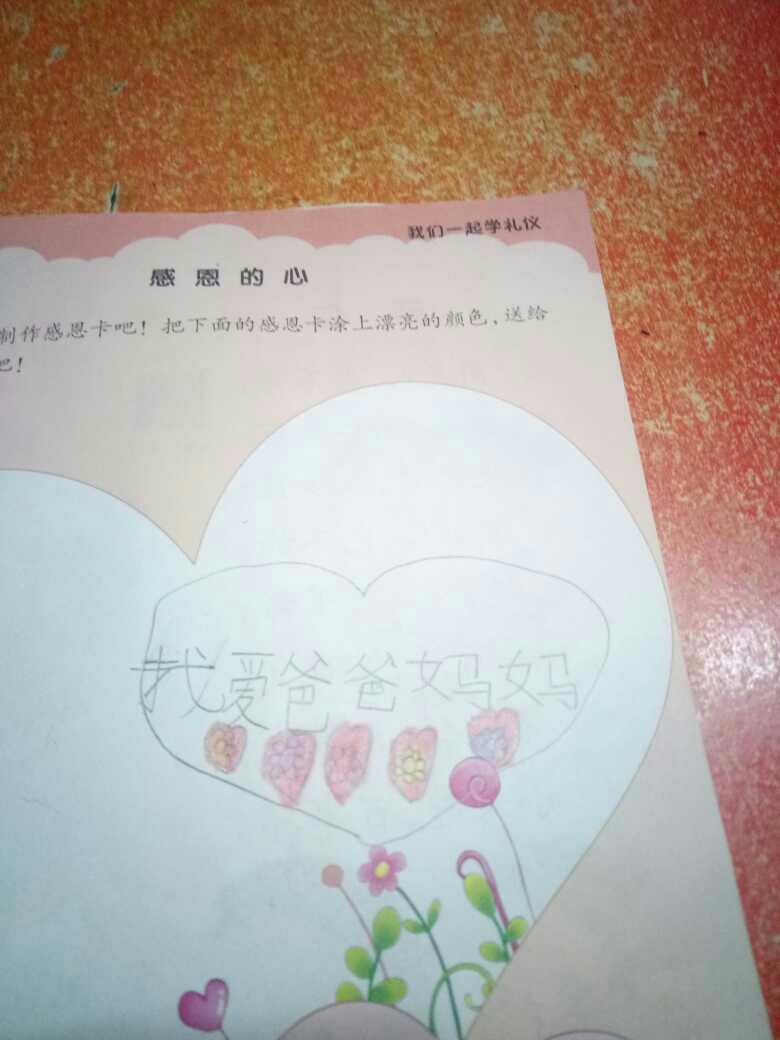 我们一起学礼仪
感恩的心
制作感恩卡吧！把下面的感恩卡涂上漂亮的颜色，送给
吧！
找爱爸爸妈妈